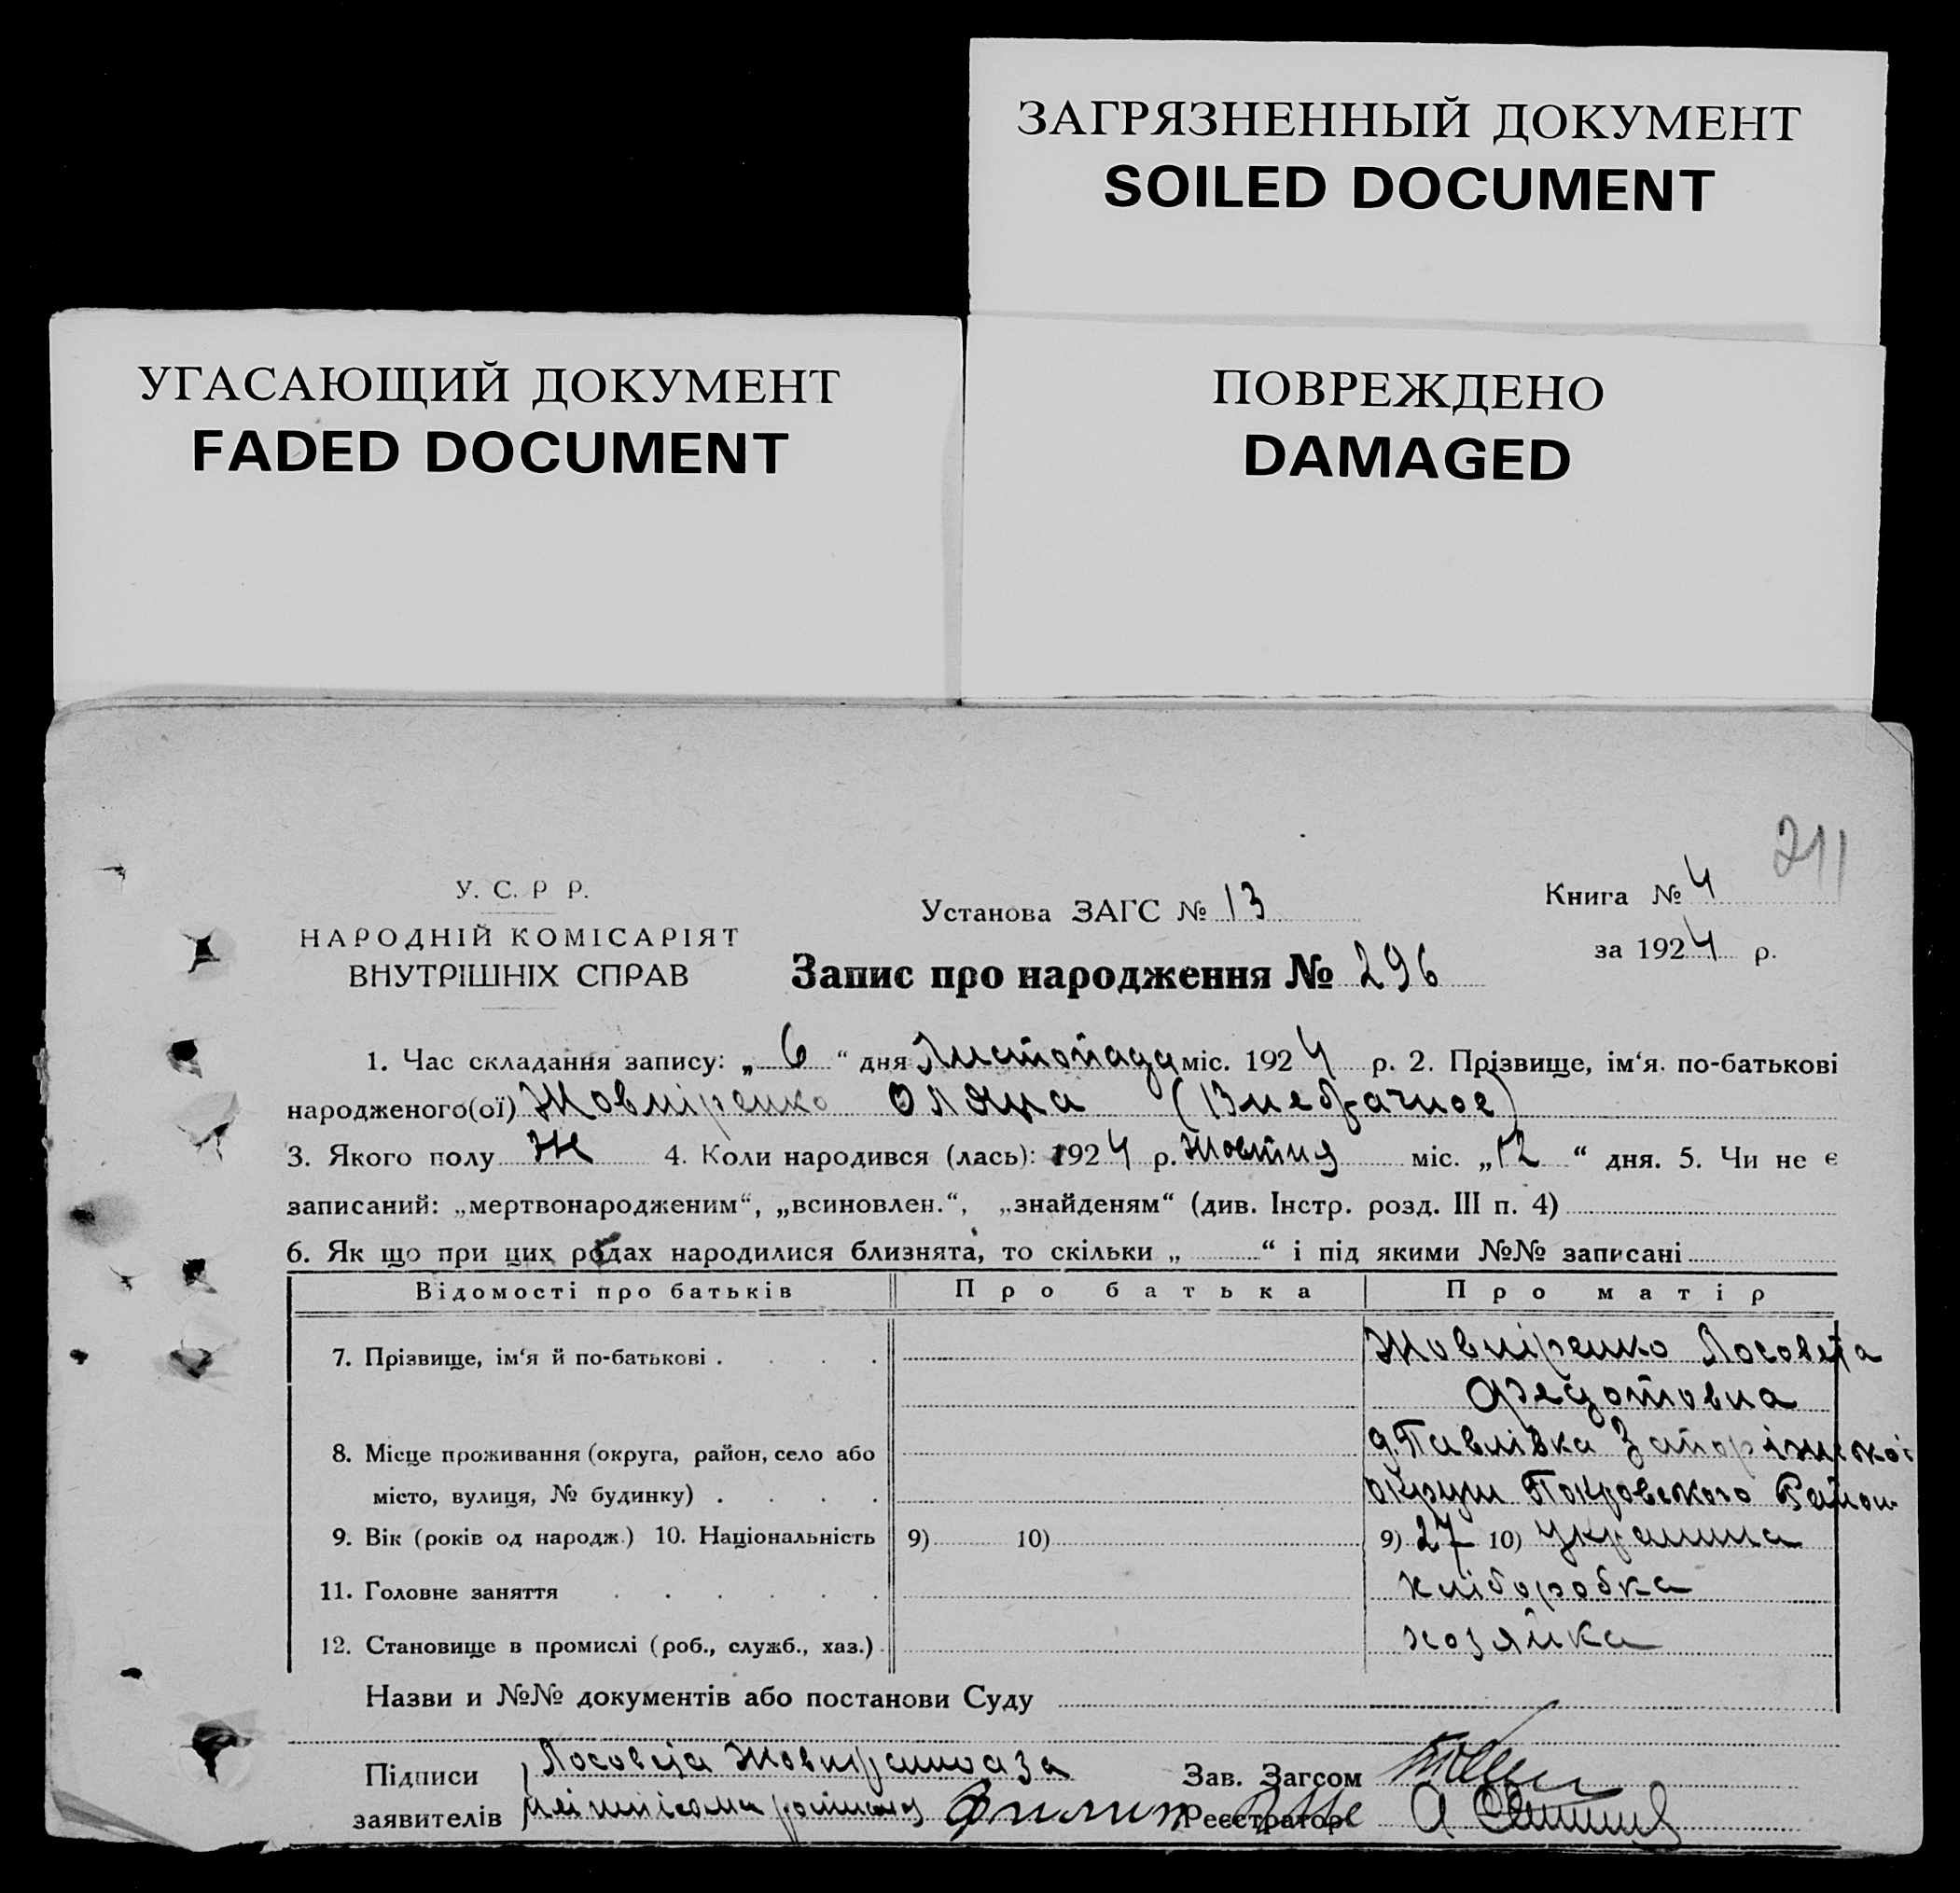 ЗАГРЯЗНЕННЫЙ ДОКУМЕНТ
SOILED DOCUMENT
УГАСАЮЩИЙ ДОКУМЕНТ
FADED DOCUMENT
ПОВРЕЖДЕНО
DAMAGED
211
У. С. Р Р.
НАРОДНІЙ КОМІСАРІЯТ
ВНУТРІШНІХ СПРАВ
Установа ЗАГС № 13
Книга № 4
за 1924 р.
Запис про народження № 296
1. Час складання запису: „6“ дня Листопада міс. 1924 р. 2. Прізвище, ім‘я. по-батькові
народженого(ої) Жовніренко Оляна (Внебрачное)
3. Якого полу Ж 4. Коли народився (лась): 1924 р. Жовтня міс. „12“ дня. 5. Чи не є
записаний: „мертвонародженим“, „всиновлен.“, „знайденям“ (див. Інстр. розд. III п. 4)
6. Як що при цих родах народилися близнята, то скільки „ “ і під якими №№ записані
Відомості про батьків Про батька Про матір
7. Прізвище, ім‘я й по-батькові . . . . Жовніренко Лосовета
Федотовна
8. Місце проживання (округа, район, село або д. Павлівка Запоріжської
місто, вулиця, № будинку) . . . . округи Покровського Район
9. Вік (років од народж.) 10. Національність 9) 10) 9) 27 10)
11. Головне заняття . . . . . . хліборобка
12. Становище в промислі (роб., служб., хаз.) хозяйка
Назви и №№ документів або постанови Суду
Підписи Лосовета за Зав. Загсом
заявителів Филип Реєстратор